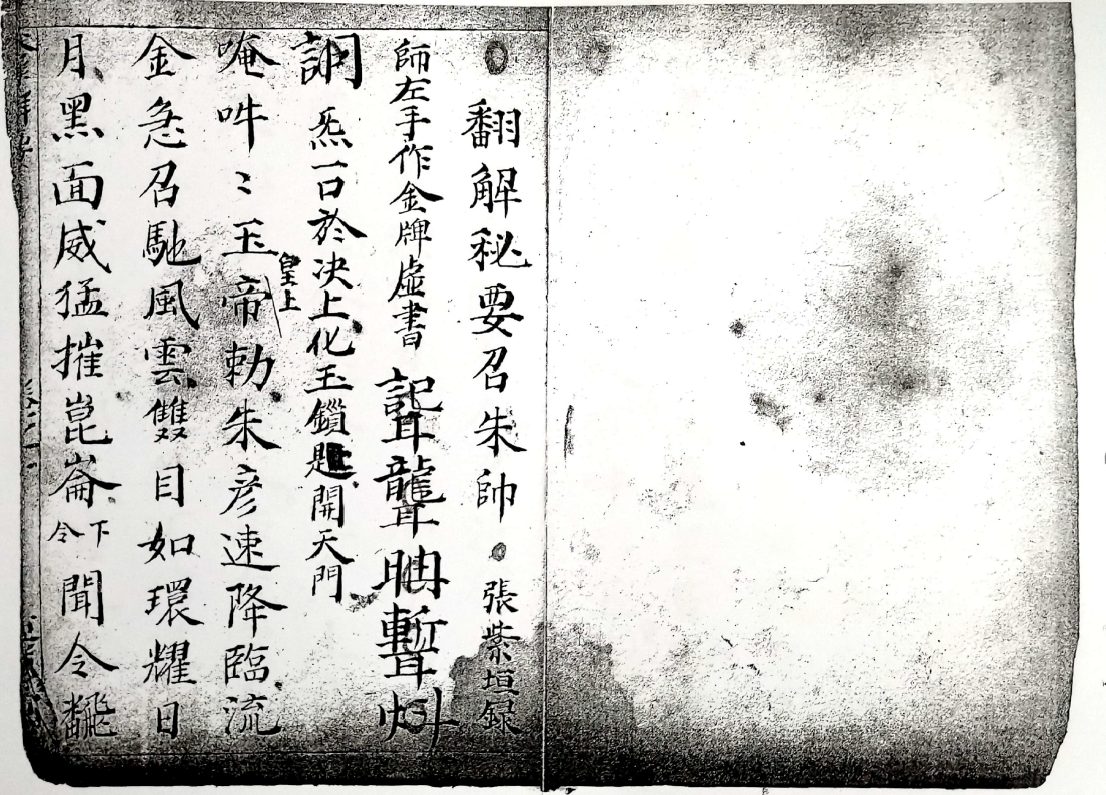 翻解秘要召朱帥 張紫垣録
師左手作金牌虛書
炁一口於決上化玉鎖匙開天門
唵吽〻玉帝勅朱彥速降臨流
皇上
金急召馳風雲雙目如環耀日
月黑面威猛摧崑崙下令聞令